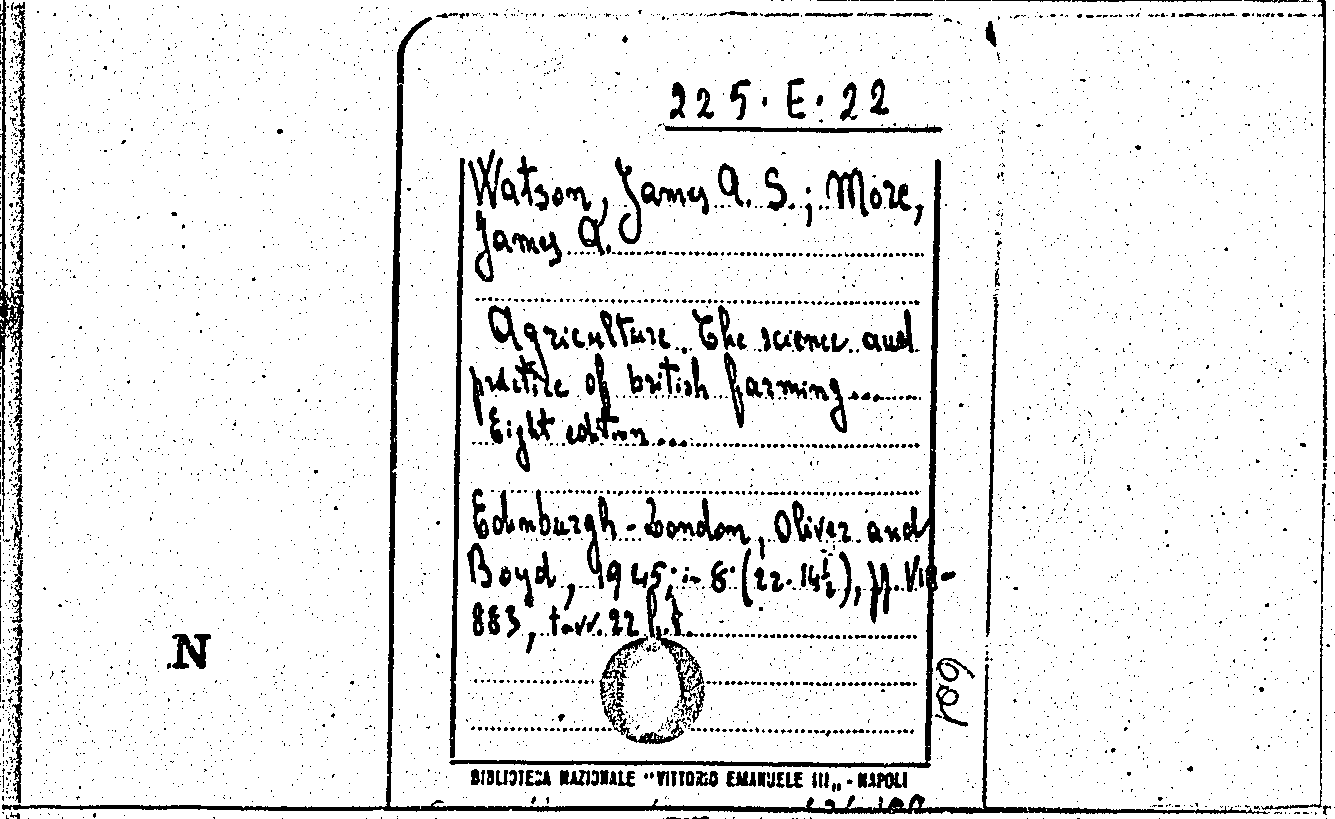 225. E. 22
Watson, James A. S.; More,
James A.
Agriculture. The science and
practice of british farming....
Eight edition...
Edinburgh - London, Oliver and
Boyd, 1945; in 8° (22.14½), pp. VIII-
883, tavv. 22 f.t.
N
BIBLIOTECA NAZIONALE "VITTORIO EMANUELE III„ - NAPOLI